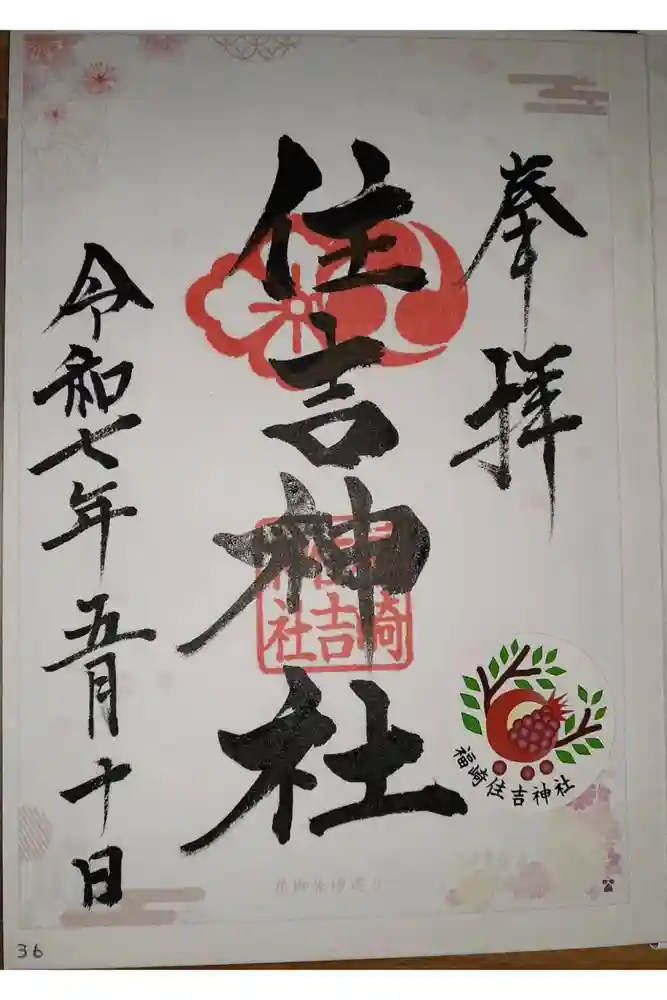 奉拝
住吉神社
福崎
住吉
神社
令和七年五月十日
福崎住吉神社
花御朱印巡り
36